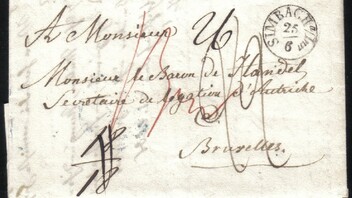 A Monsieur
SIMBACH
25
6
Monsieur le Baron de Handel
Secrétaire de Légation d'Autriche
Bruxelles.